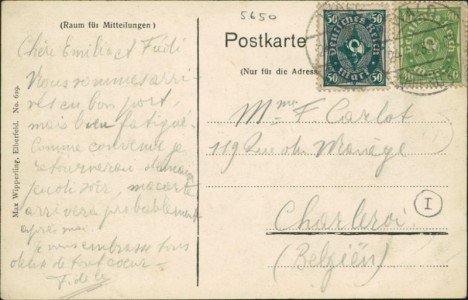 (Raum für Mitteilungen)
5650
Postkarte
(Nur für die Adresse
Deutsches Reich
50 50
Mark
40
Max Wipperling, Elberfeld. No. 609.
Chère Emilie et Fidi
Nous sommes arri-
vés en bon port,
mais bien fatigué.
Comme convenu je
retournerai demain
jeudi soir, ma carte
arrivera probablement
après moi.
Je vous embrasse tous
deux de tout coeur -
Fidele
Mme F. Carlot
119 Rue du Manège
Charleroi
(Belgiën)
I